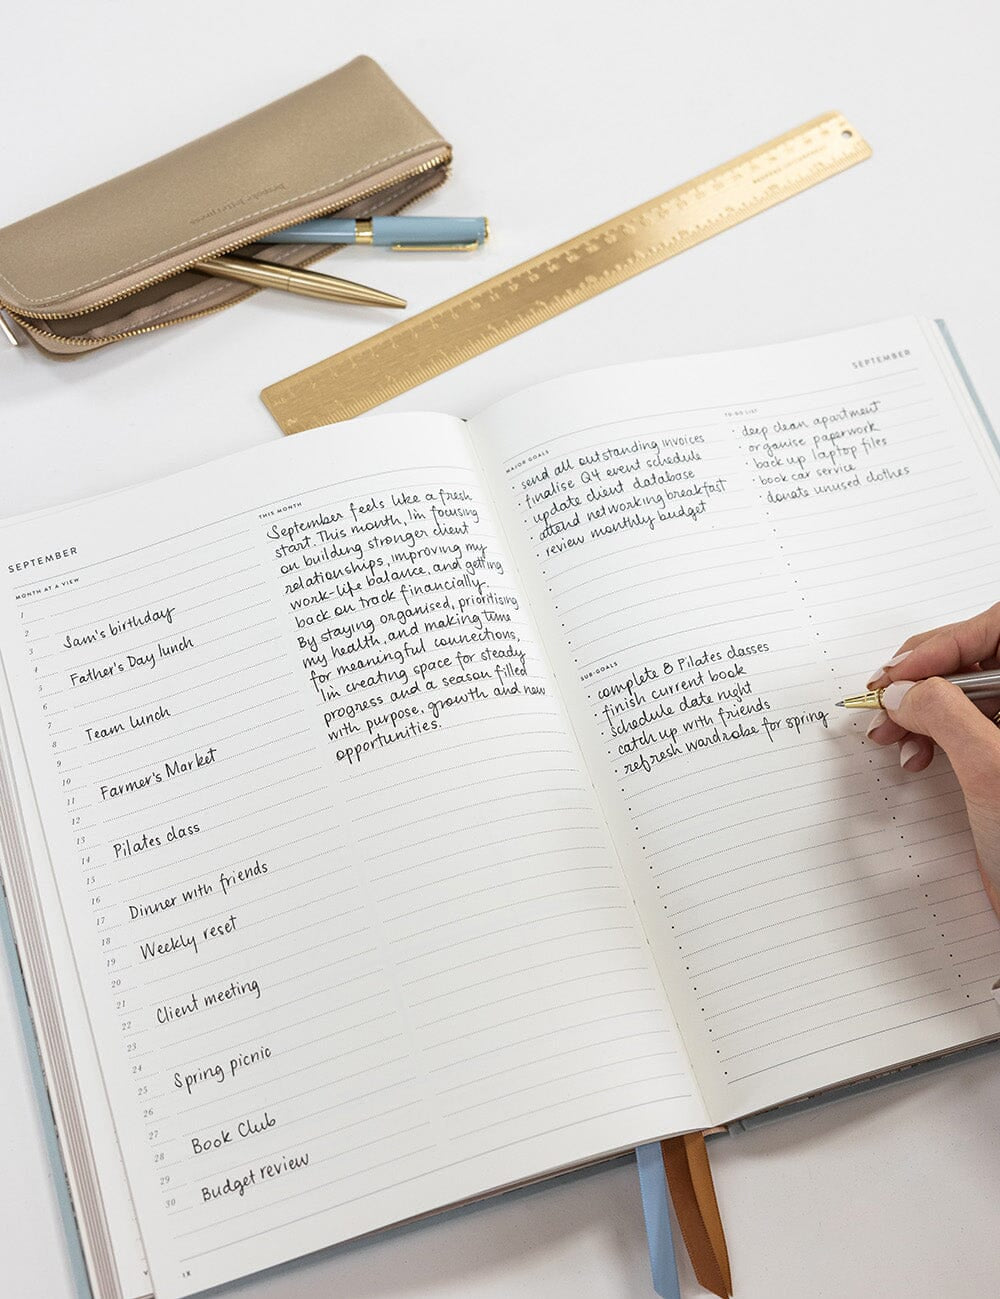 SEPTEMBER
MONTH AT A VIEW
1
2
3 Sam's birthday
4
5 Father's Day lunch
6
7
8 Team lunch
9
10
11 Farmer's Market
12
13
14 Pilates class
15
16
17 Dinner with friends
18
19 Weekly reset
20
21
22 Client meeting
23
24
25 Spring picnic
26
27
28 Book Club
29
30 Budget review
IX
THIS MONTH
September feels like a fresh
start. This month, I'm focusing
on building stronger client
relationships, improving my
work-life balance, and getting
back on track financially.
By staying organised, prioritising
my health, and making time
for meaningful connections,
I'm creating space for steady
progress and a season filled
with purpose, growth and new
opportunities.
SEPTEMBER
MAJOR GOALS
· send all outstanding invoices
· finalise Q4 event schedule
· update client database
· attend networking breakfast
· review monthly budget
TO-DO LIST
· deep clean apartment
· organise paperwork
· back up laptop files
· book car service
· donate unused clothes
SUB GOALS
· complete 8 Pilates classes
· finish current book
· schedule date night
· catch up with friends
· refresh wardrobe for spring